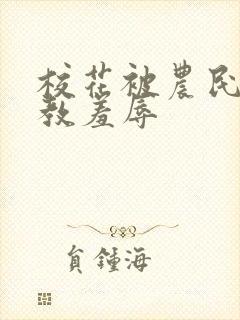 校花被農民
教羞辱
負鍾海